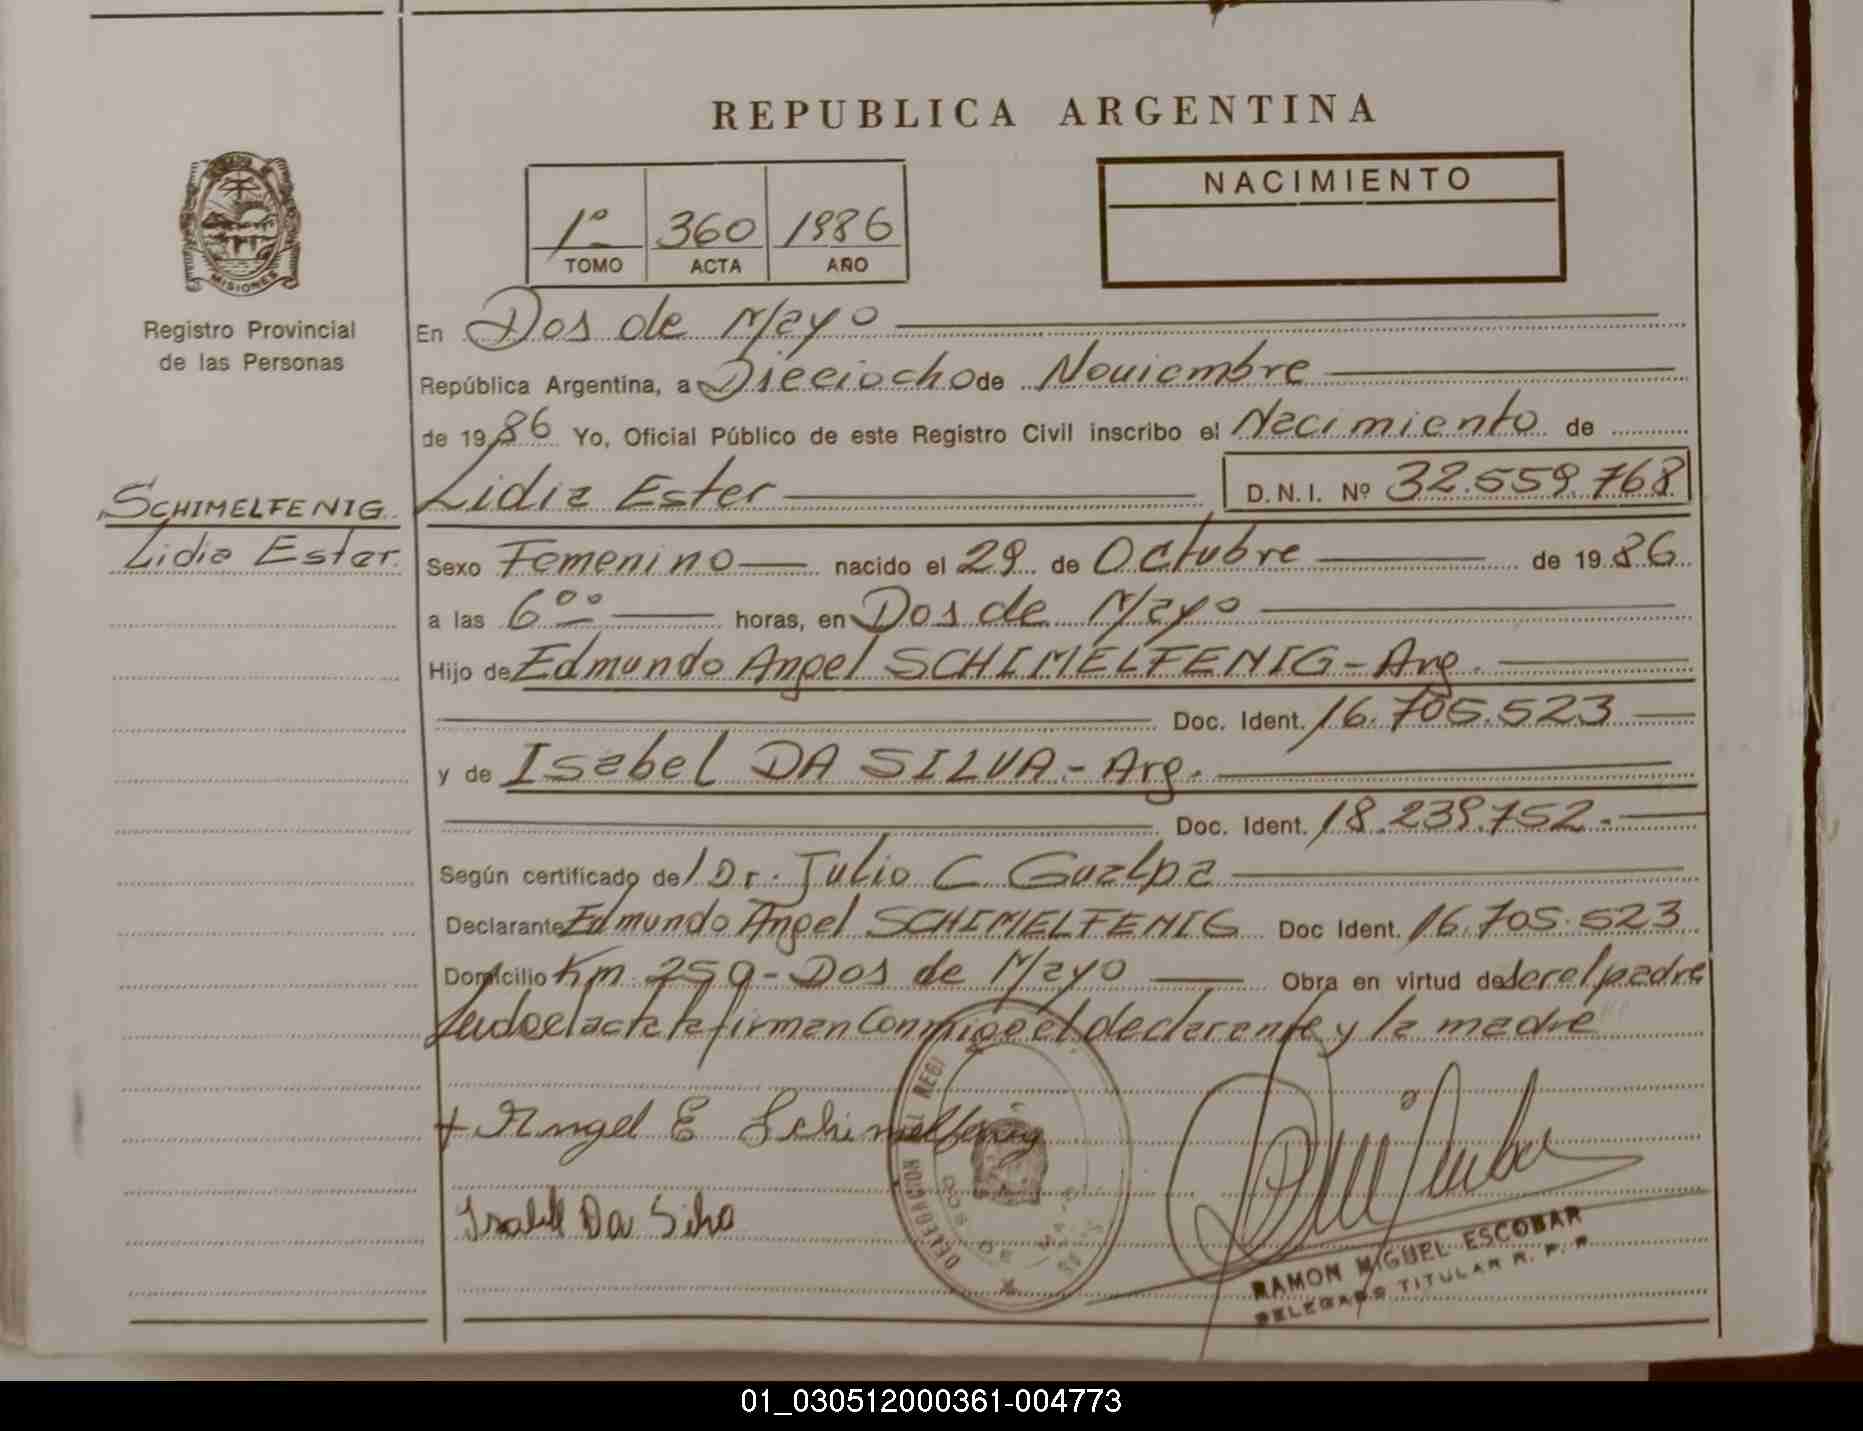 REPUBLICA ARGENTINA
1º 360 1986
TOMO ACTA AÑO
NACIMIENTO
MISIONES
Registro Provincial
de las Personas
SCHIMELFENIG
Lidia Ester
En Dos de Mayo
República Argentina, a Dieciocho de Noviembre
de 1986 Yo, Oficial Público de este Registro Civil inscribo el Nacimiento de
Lidia Ester D.N.I. Nº 32.559.768
Sexo Femenino nacido el 29 de Octubre de 1986
a las 6ºº horas, en Dos de Mayo
Hijo de Edmundo Angel SCHIMELFENIG - Arg.
Doc. Ident. 16.705.523
y de Isabel DA SILVA - Arg.
Doc. Ident. 18.239.752.-
Según certificado de/ Dr. Julio C Gualpa
Declarante Edmundo Angel SCHIMELFENIG Doc Ident. 16.705.523
Domicilio Km. 259 - Dos de Mayo Obra en virtud de ser el padre
Leidoel acta la firman Conmigo el declarante y la madre
+ Angel E Schimelfenig
Isabel Da Silva
DELEGACION REGI
DOS DE MAYO
RAMON MIGUEL ESCOBAR
DELEGADO TITULAR R. P. P.
01_030512000361-004773